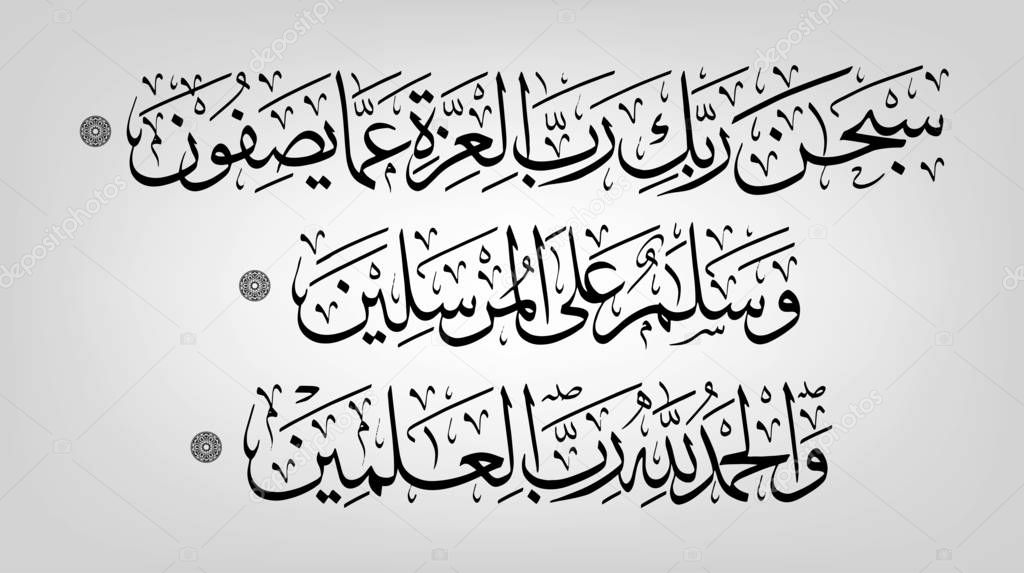 سُبْحٰنَ رَبِّكَ رَبِّ الْعِزَّةِ عَمَّا يَصِفُوْنَ
وَسَلٰمٌ عَلَى الْمُرْسَلِيْنَ
وَالْحَمْدُ لِلّٰهِ رَبِّ الْعٰلَمِيْنَ
depositphotos